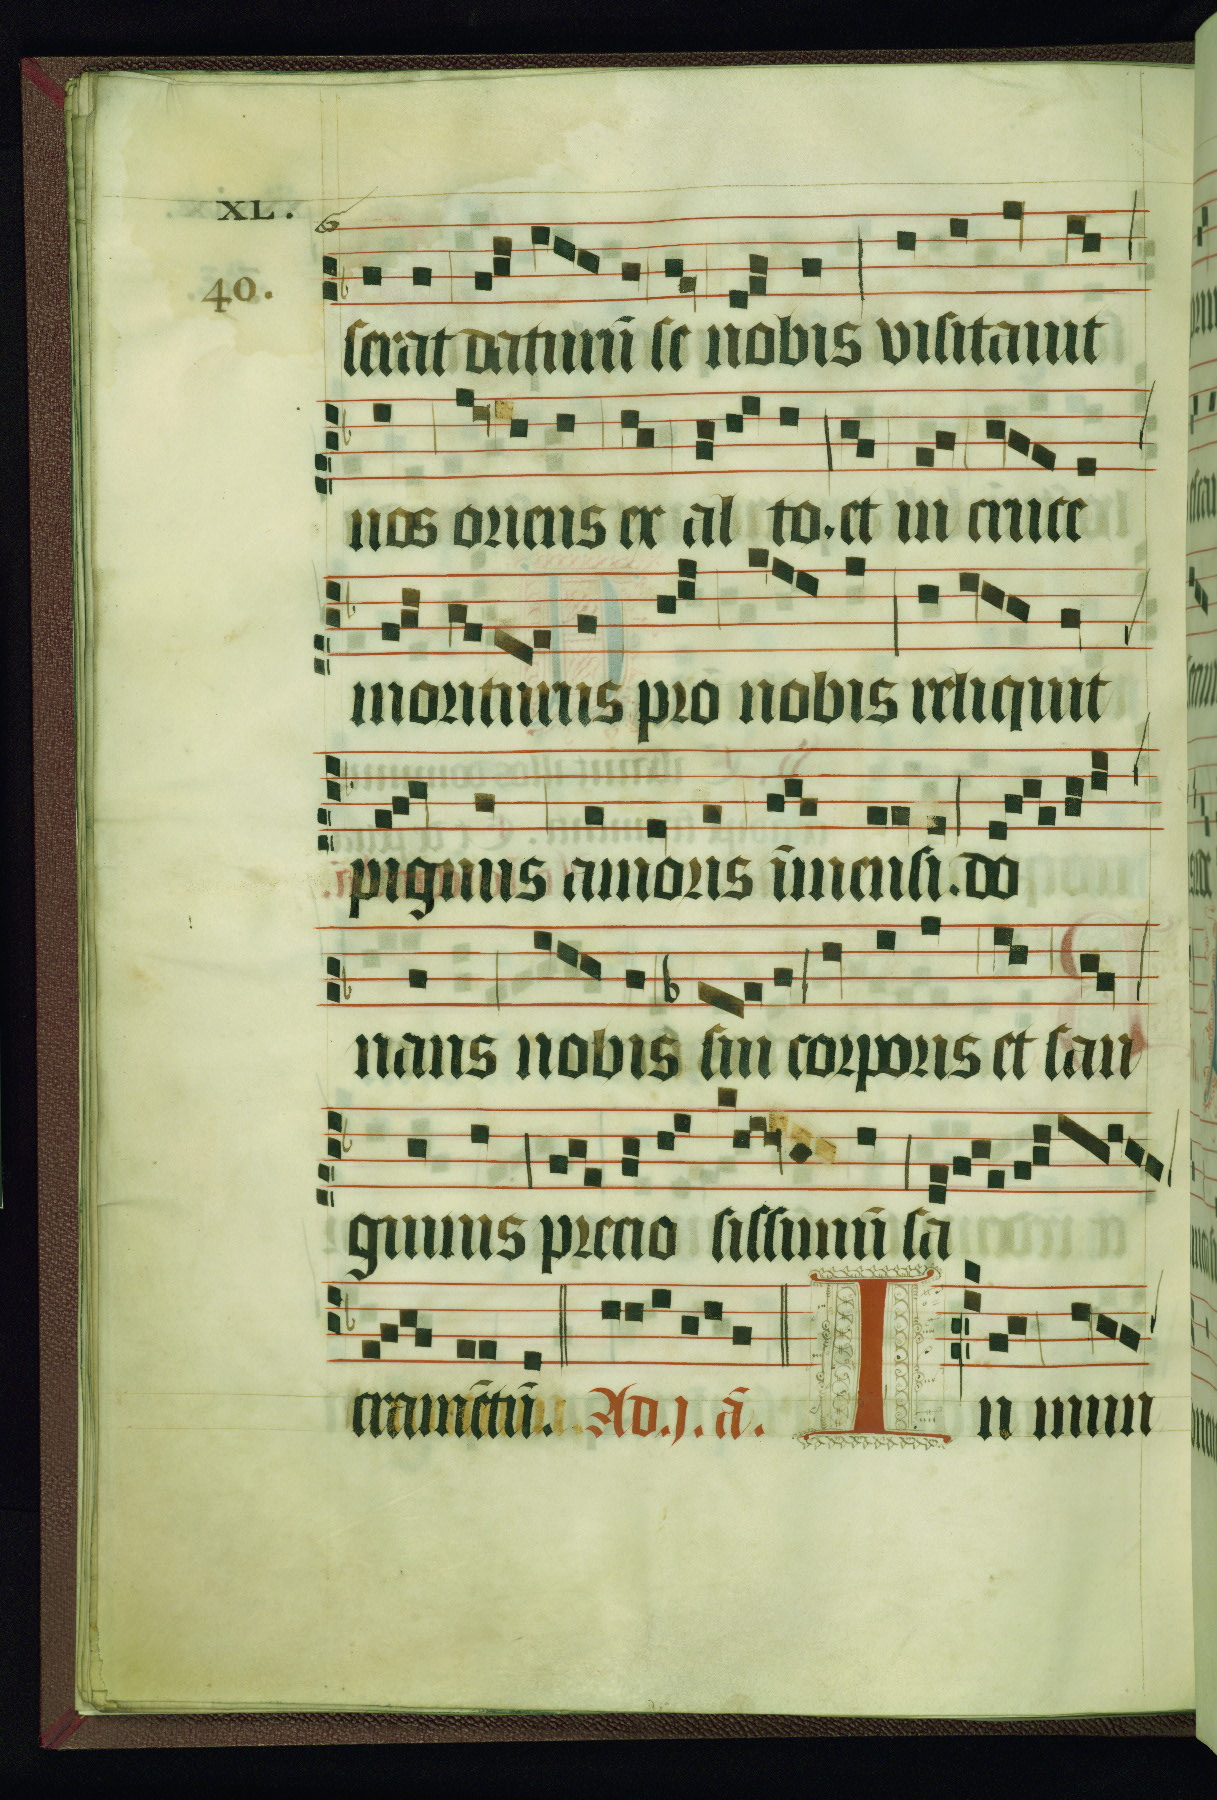 XL.
40.
serat daturū se nobis visitavit
nos oriens ex al to. et in cruce
moriturus pro nobis reliquit
pignus amoris īmensi. do
nans nobis sui corporis et san
guinis precio sissimū sa
cramētū. Ad .j. ā. In mun